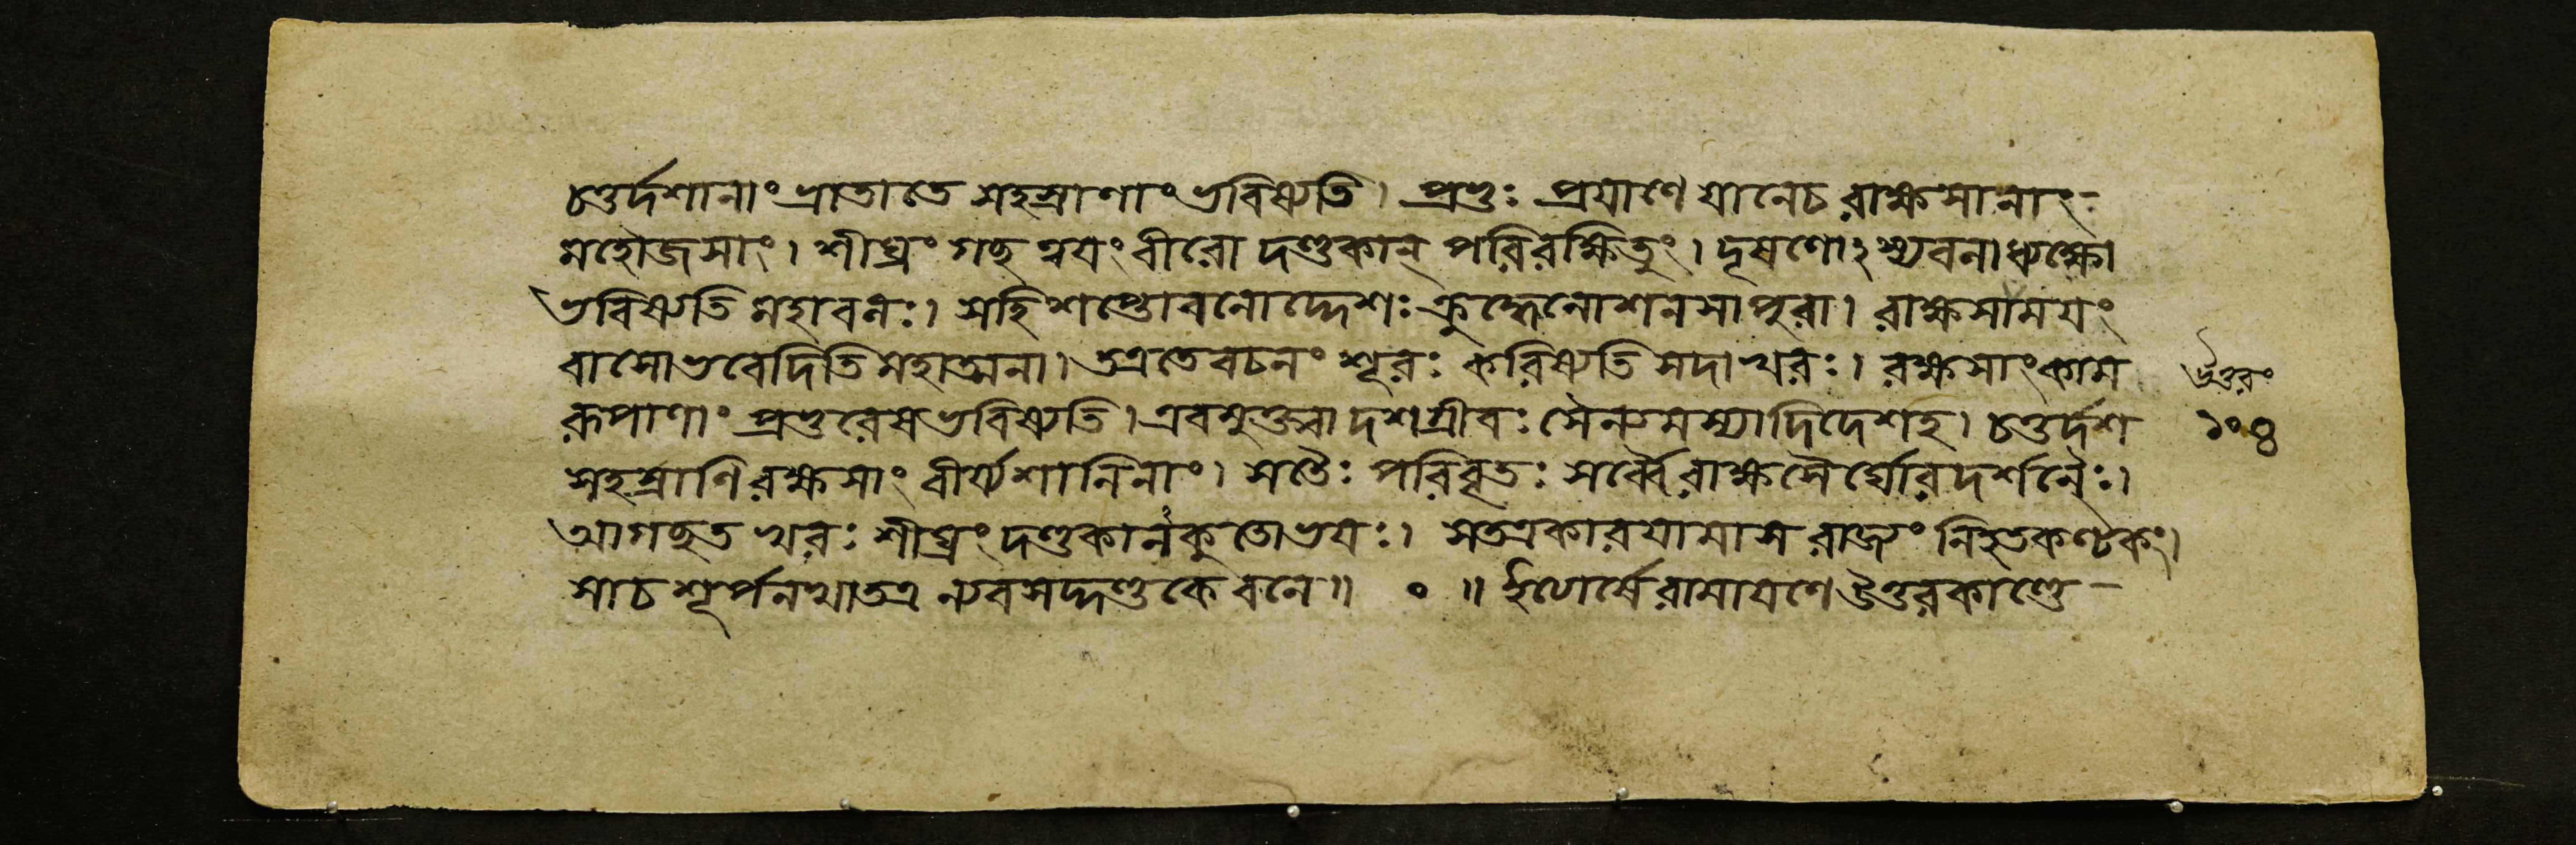 চতুর্দশানাং ভ্রাতাতে সহস্রাণাং ভবিষ্যতি। প্রভুঃ প্রযাণে যানেচ রাক্ষসানাং-
মহৌজসাং। শীঘ্রং গচ্ছ ত্বযং বীরো দণ্ডকান্ পরিরক্ষিতুং। দূষণোঽস্য বলাধ্যক্ষো
ভবিষ্যতি মহাবলঃ। সহি শপ্তো বনোদ্দেশঃ ক্রুদ্ধেনোশনসাপুরা। রাক্ষসামযং
বাসো ভবেদিতি মহাত্মনা। তত্রতে বচনং শূরঃ করিষ্যতি সদা খরঃ। রক্ষসাংকাম
রূপাণাং প্রভুরেষ ভবিষ্যতি। এবমুক্ত্বা দশগ্রীবঃ সৈন্যমস্যাদিদেশহ। চতুর্দশ
সহস্রাণি রক্ষসাং বীর্য্যশালিনাং। সতৈঃ পরিবৃতঃ সর্ব্বৈরাক্ষসৈর্ঘোরদর্শনৈঃ।
আগচ্ছত খরঃ শীঘ্রং দণ্ডকানকুতোভযঃ। সতত্রকারযামাস রাজ্যং নিহতকণ্টকং।
সাচ শূর্পনখাতত্র ন্যবসদ্দণ্ডকে বনে॥ ० ॥ ইত্যার্ষে রামাযণে উত্তরকাণ্ডে-
উত্তরং
১০৪